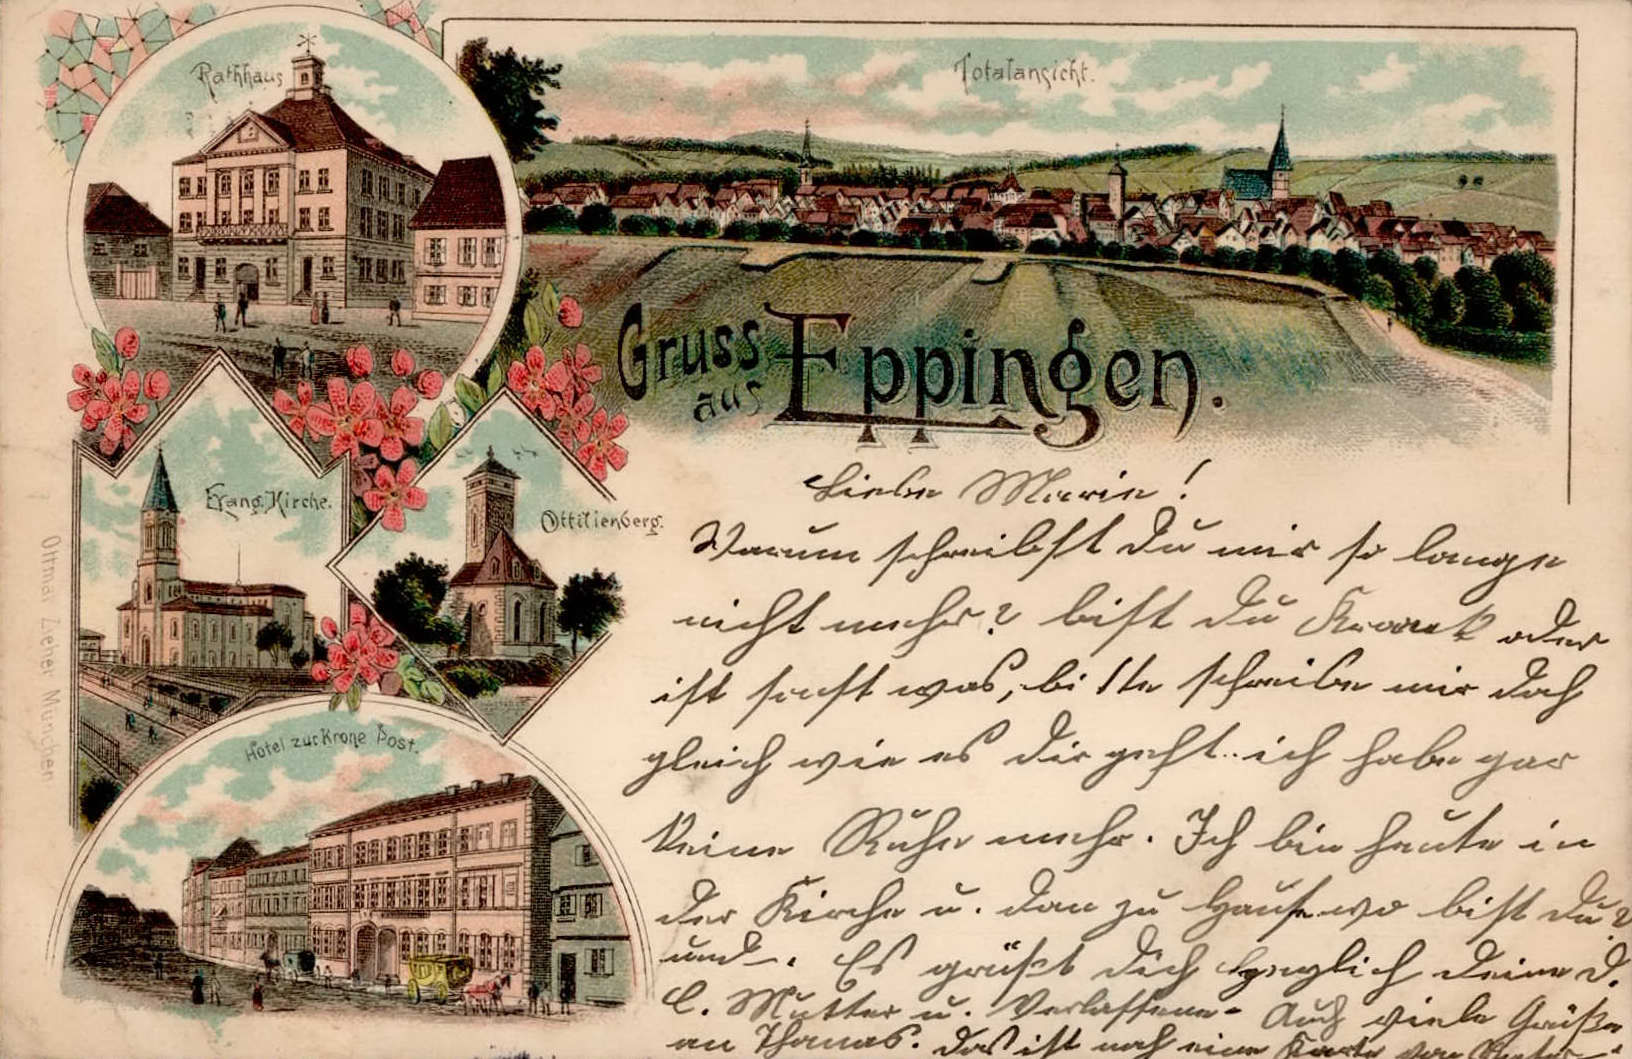 Rathhaus
Totalansicht.
Gruss
aus Eppingen.
Evang. Kirche.
Ottilienberg.
Hotel zur Krone Post.
Ottmar Zieher München
Liebe Marie!
Warum schreibst Du mir so lange
nicht mehr? bist Du Krank oder
ist sonst was, bitte schreibe mir doch
gleich wie es Dir geht.. ich habe gar
keine Ruhe mehr. Ich bin heute in
der Kirche u. dan zu Hause wo bist Du?
und. Es grüßt Dich herzlich Deine D.
l. Mutter u. Verlassene - Auch viele Grüße
an Das ist noch eine Karte von